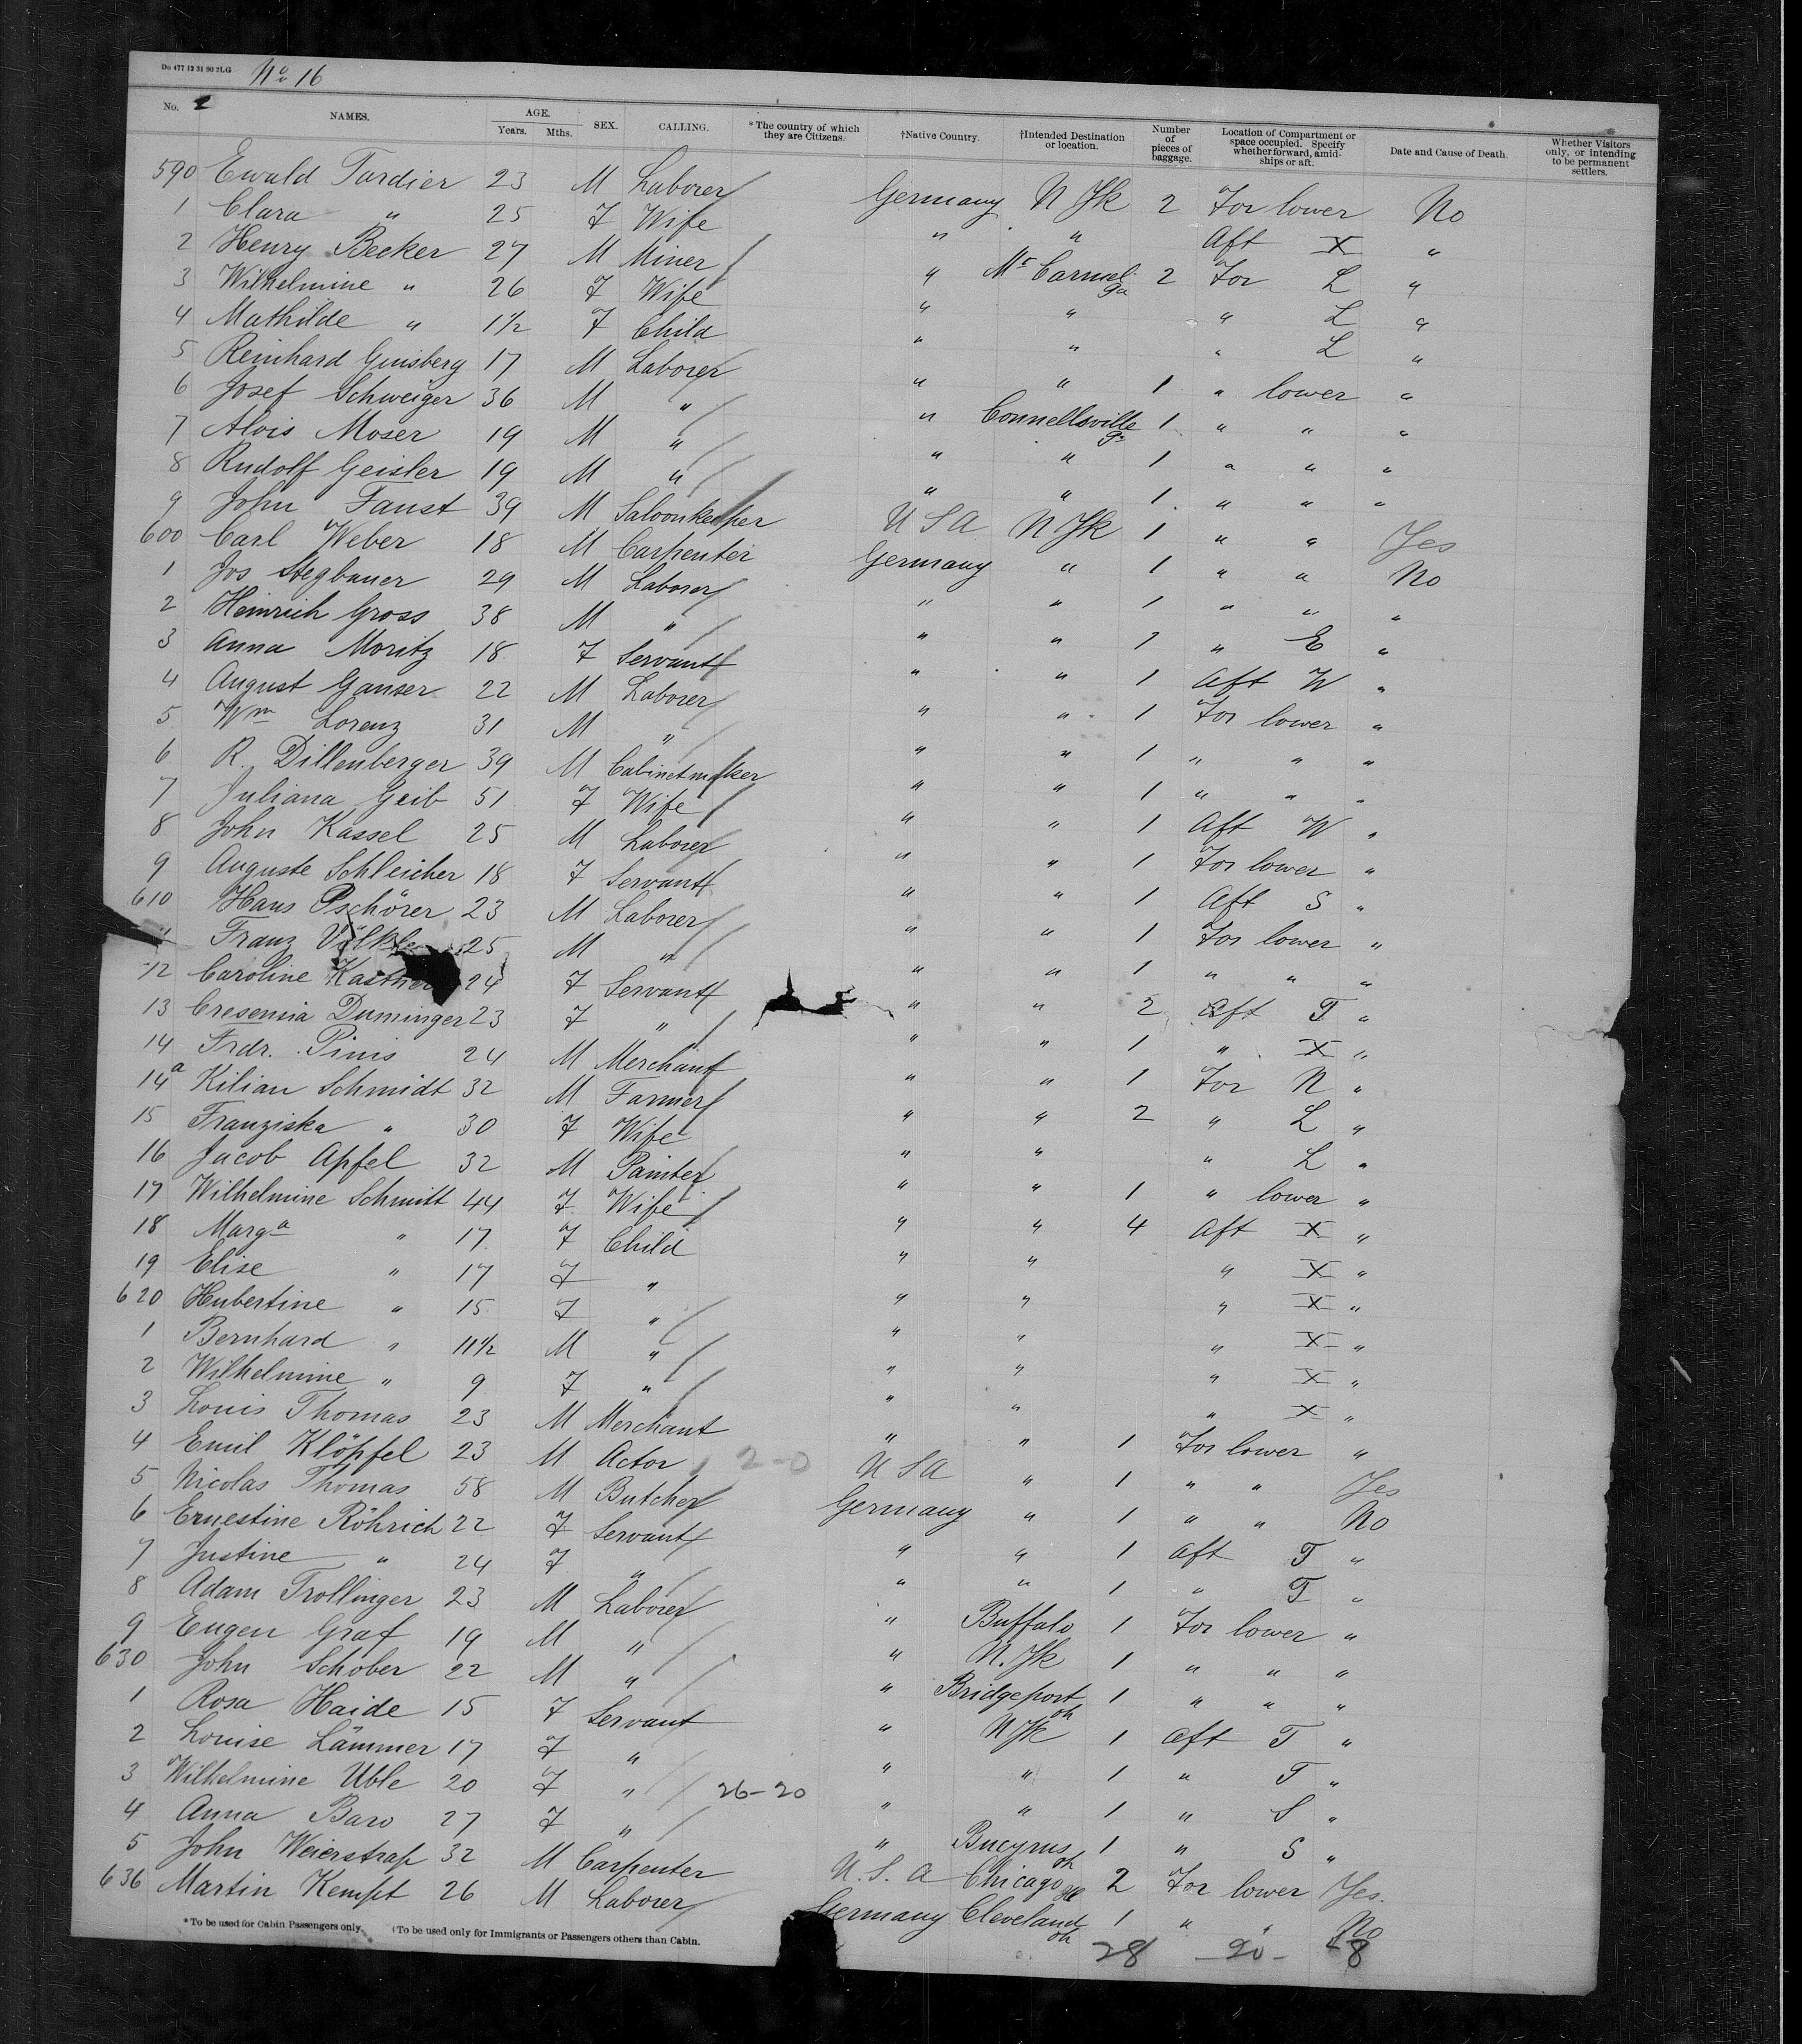 Do 477 12 31 90 2LG No 16
No. NAMES. AGE. Years. Mths. SEX. CALLING. *The country of which they are Citizens. †Native Country. †Intended Destination or location. Number of pieces of baggage. Location of Compartment or space occupied. Specify whether forward, amidships or aft. Date and Cause of Death. Whether Visitors only, or intending to be permanent settlers.
590 Ewald Tardier 23 M Laborer Germany N Yk 2 For lower No
1 Clara " 25 F Wife " " Aft X "
2 Henry Becker 27 M Miner " Mt Carmel Pa 2 For L "
3 Wilhelmine " 26 F Wife " " " L "
4 Mathilde " 1½ F Child " " " L "
5 Reinhard Ginsberg 17 M Laborer " " 1 " lower "
6 Josef Schweiger 36 M " " Connellsville Pa 1 " " "
7 Alois Moser 19 M " " " 1 " " "
8 Rudolf Geisler 19 M " " " 1 " " "
9 John Faust 39 M Saloonkeeper U S A N Yk 1 " " Yes
600 Carl Weber 18 M Carpenter Germany " 1 " " No
1 Jos Stegbauer 29 M Laborer " " 1 " " "
2 Heinrich Gross 38 M " " " 1 " E "
3 Anna Moritz 18 F Servant " " 1 Aft W "
4 August Ganser 22 M Laborer " " 1 For lower "
5 Wm Lorenz 31 M " " " 1 " " "
6 R. Dillenberger 39 M Cabinetmaker " " 1 " " "
7 Juliana Geib 51 F Wife " " 1 Aft W "
8 John Kassel 25 M Laborer " " 1 For lower "
9 Auguste Schleicher 18 F Servant " " 1 Aft S "
610 Hans Pschörer 23 M Laborer " " 1 For lower "
Franz Völkle 25 M " " " 1 " " "
12 Caroline Kastner 24 F Servant " " 2 Aft T "
13 Cresensia Duminger 23 F " " " 1 " X "
14 Frdr. Pinis 24 M Merchant " " 1 For N "
14a Kilian Schmidt 32 M Farmer " " 2 " L "
15 Franziska " 30 F Wife " " " L "
16 Jacob Apfel 32 M Painter " " 1 " lower "
17 Wilhelmine Schmitt 44 F Wife " " 4 Aft X "
18 Marga " 17 F Child " " " X "
19 Elise " 17 F " " " " X "
620 Hubertine " 15 F " " " " X "
1 Bernhard " 11½ M " " " " X "
2 Wilhelmine " 9 F " " " " X "
3 Louis Thomas 23 M Merchant " " 1 For lower "
4 Emil Klöpfel 23 M Actor 2-0 U S A " 1 " " Yes
5 Nicolas Thomas 58 M Butcher Germany " 1 " " No
6 Ernestine Röhrich 22 F Servant " " 1 Aft T "
7 Justine " 24 F " " " 1 " T "
8 Adam Trollinger 23 M Laborer " Buffalo 1 For lower "
9 Eugen Graf 19 M " " N. Yk 1 " " "
630 John Schober 22 M " " Bridgeport oh 1 " " "
1 Rosa Haide 15 F Servant " N Yk 1 Aft T "
2 Louise Lämmer 17 F " " " 1 " T "
3 Wilhelmine Uble 20 F " 26-20 " " 1 " S "
4 Anna Baro 27 F " " Bucyrus oh 1 " S "
5 John Weierstrass 32 M Carpenter U. S. A Chicago Ill 2 For lower Yes.
636 Martin Kempt 26 M Laborer Germany Cleveland oh 1 " " No
*To be used for Cabin Passengers only. †To be used only for Immigrants or Passengers others than Cabin.
28 -20- 48